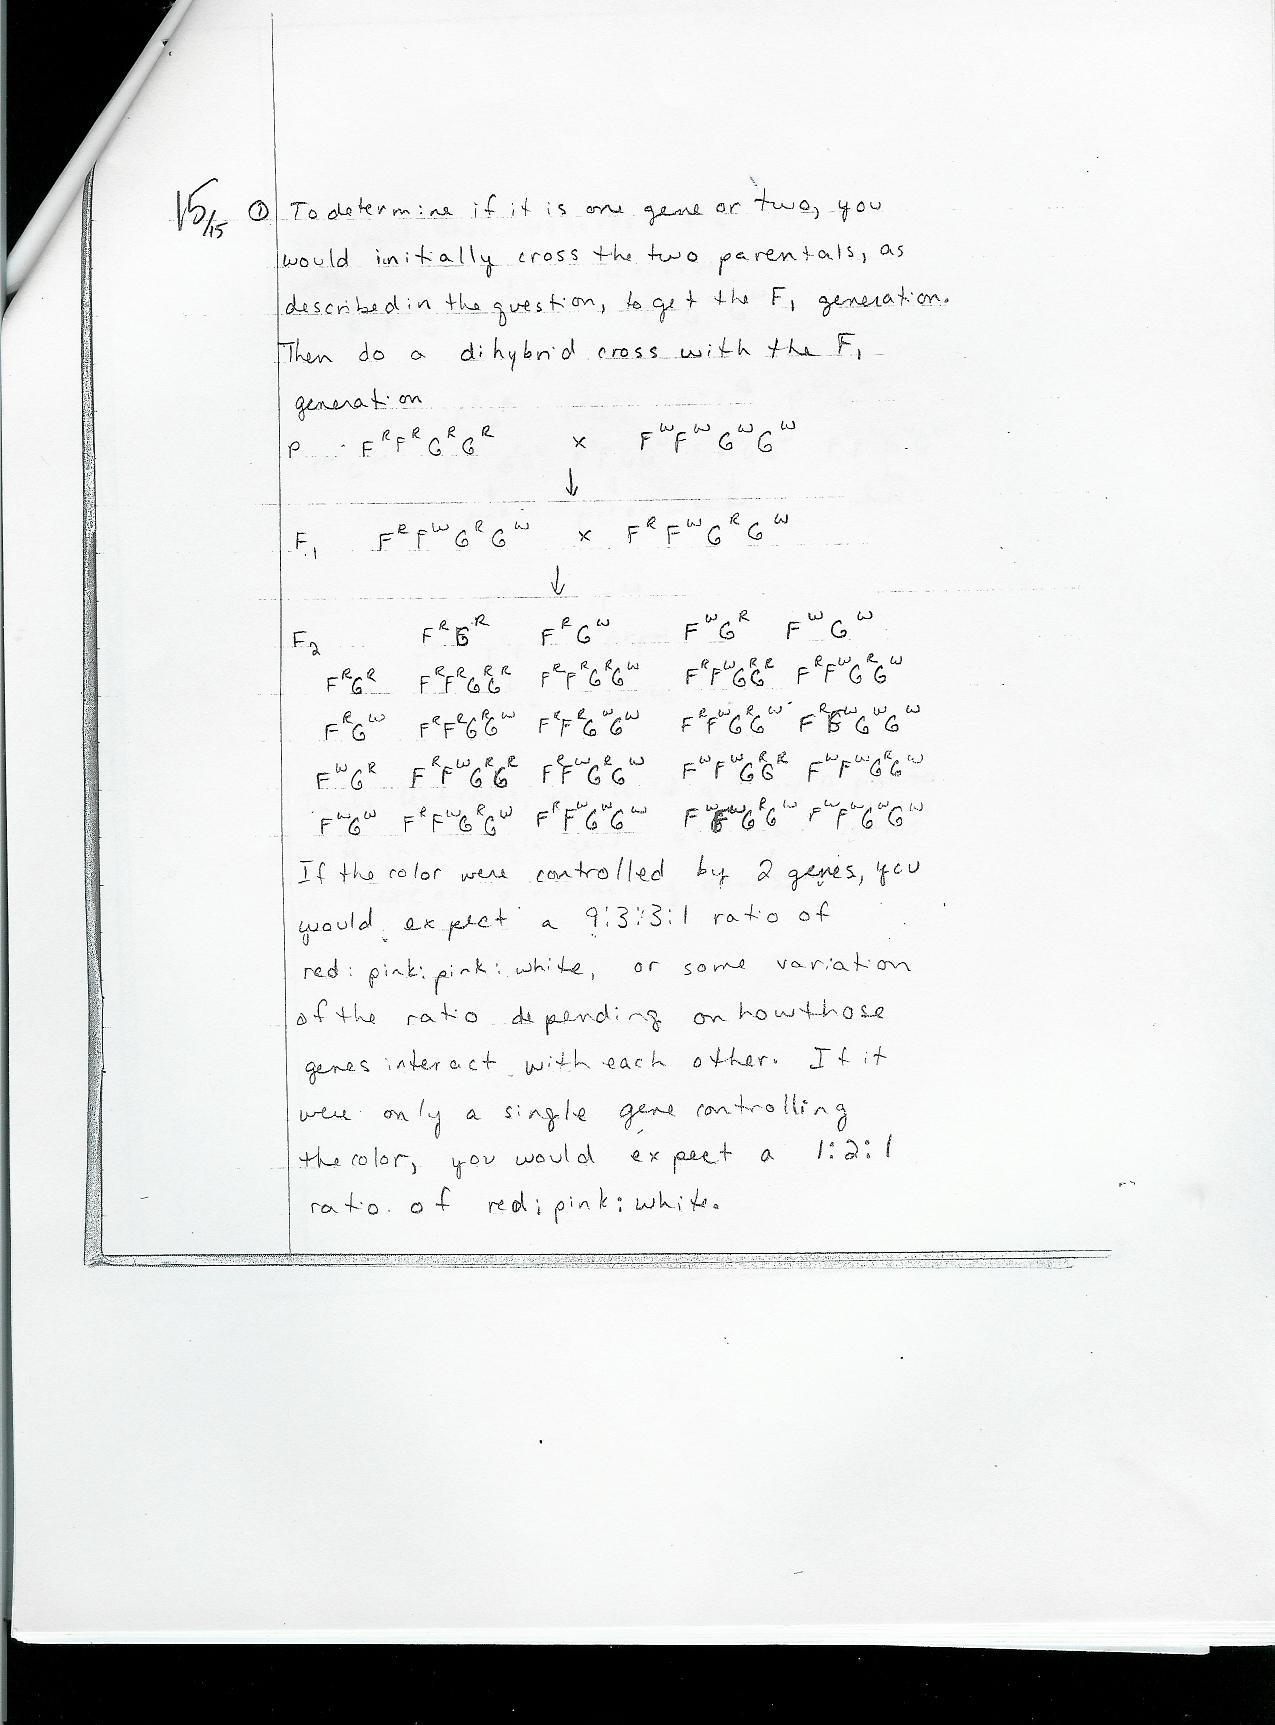 15/15 ① To determine if it is one gene or two, you
would initially cross the two parentals, as
described in the question, to get the F₁ generation.
Then do a dihybrid cross with the F₁
generation
P FᴿFᴿGᴿGᴿ x FᵂFᵂGᵂGᵂ
↓
F₁ FᴿFᵂGᴿGᵂ x FᴿFᵂGᴿGᵂ
↓
F₂ FᴿGᴿ FᴿGᵂ FᵂGᴿ FᵂGᵂ
FᴿGᴿ FᴿFᴿGᴿGᴿ FᴿFᴿGᴿGᵂ FᴿFᵂGᴿGᴿ FᴿFᵂGᴿGᵂ
FᴿGᵂ FᴿFᴿGᴿGᵂ FᴿFᴿGᵂGᵂ FᴿFᵂGᴿGᵂ FᴿFᵂGᵂGᵂ
FᵂGᴿ FᴿFᵂGᴿGᴿ FᴿFᵂGᴿGᵂ FᵂFᵂGᴿGᴿ FᵂFᵂGᴿGᵂ
FᵂGᵂ FᴿFᵂGᴿGᵂ FᴿFᵂGᵂGᵂ FᵂFᵂGᴿGᵂ FᵂFᵂGᵂGᵂ
If the color were controlled by 2 genes, you
would expect a 9:3:3:1 ratio of
red: pink: pink: white, or some variation
of the ratio depending on how those
genes interact with each other. If it
were only a single gene controlling
the color, you would expect a 1:2:1
ratio of red: pink: white.